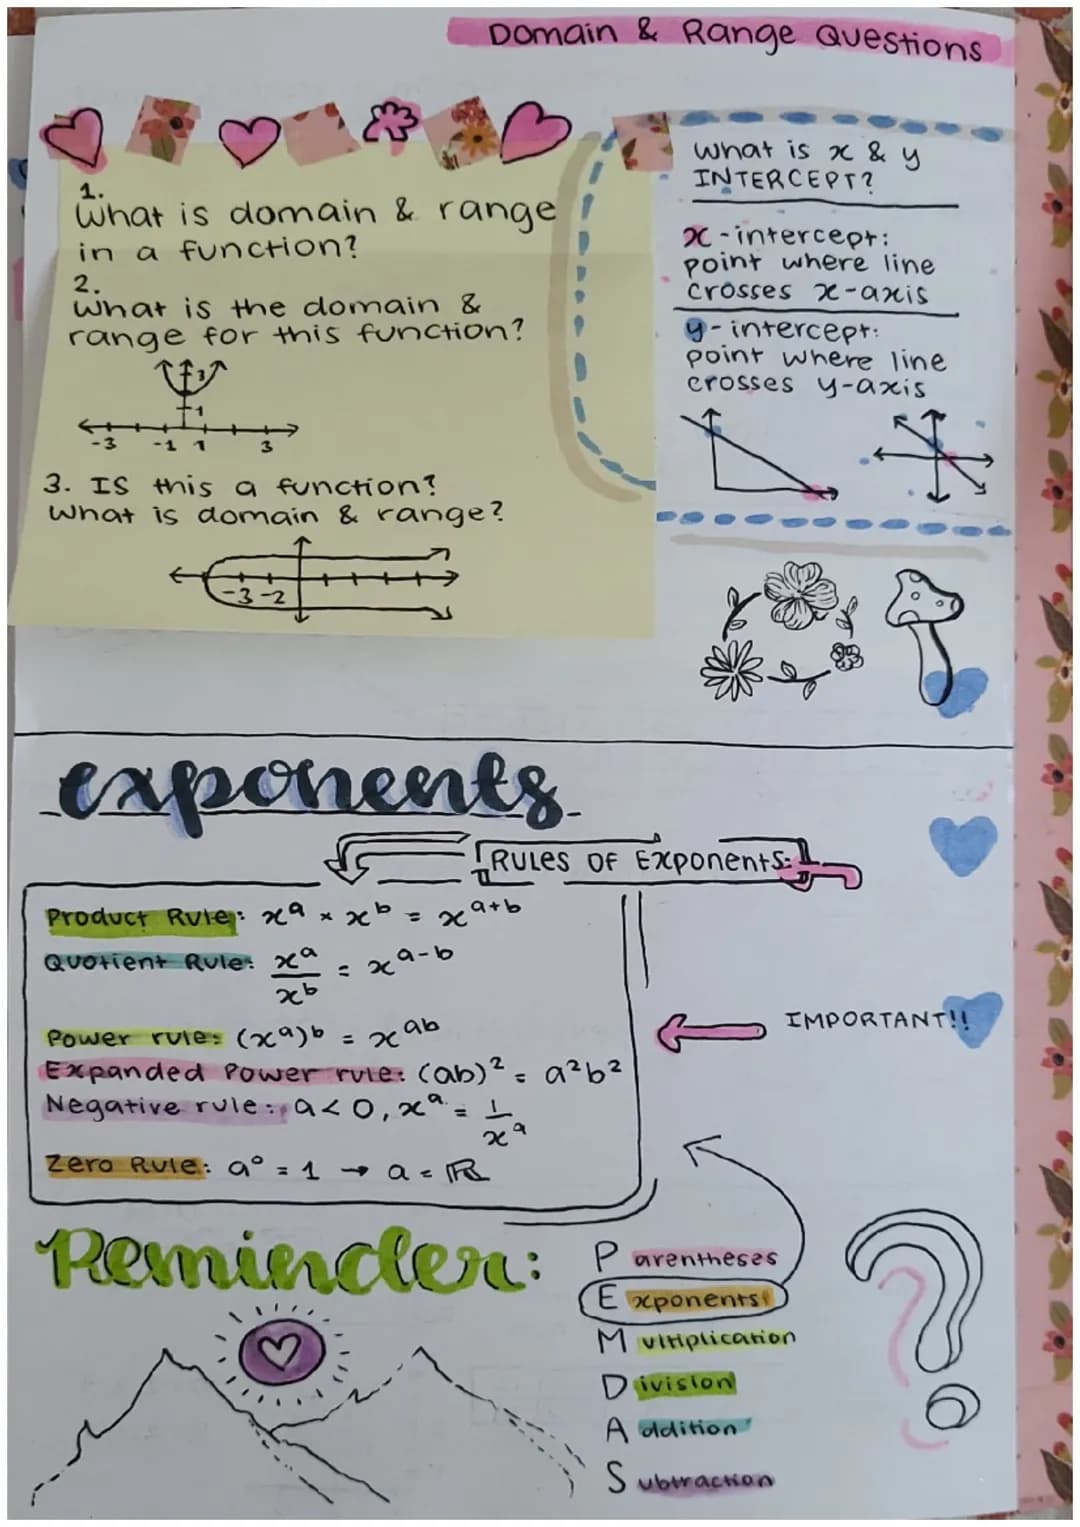 Domain & Range Questions
1.
What is domain & range
in a function?
2.
What is the domain &
range for this function?
3
1
-3 -1 1 3
3. Is this a function?
What is domain & range?
-3 -2
What is x & y
INTERCEPT?
x-intercept:
point where line
crosses x-axis
y-intercept:
point where line
crosses y-axis
exponents
RULES OF Exponents:
Product Rule: xᵃ × xᵇ = xᵃ⁺ᵇ
Quotient Rule: xᵃ/xᵇ = xᵃ⁻ᵇ
Power rule: (xᵃ)ᵇ = xᵃᵇ
Expanded Power rule: (ab)² = a²b²
Negative rule: a<0, xᵃ = 1/xᵃ
Zero Rule: a⁰ = 1 → a = ℝ
IMPORTANT!!
Reminder:
Parentheses
Exponents
Multiplication
Division
Addition
Subtraction